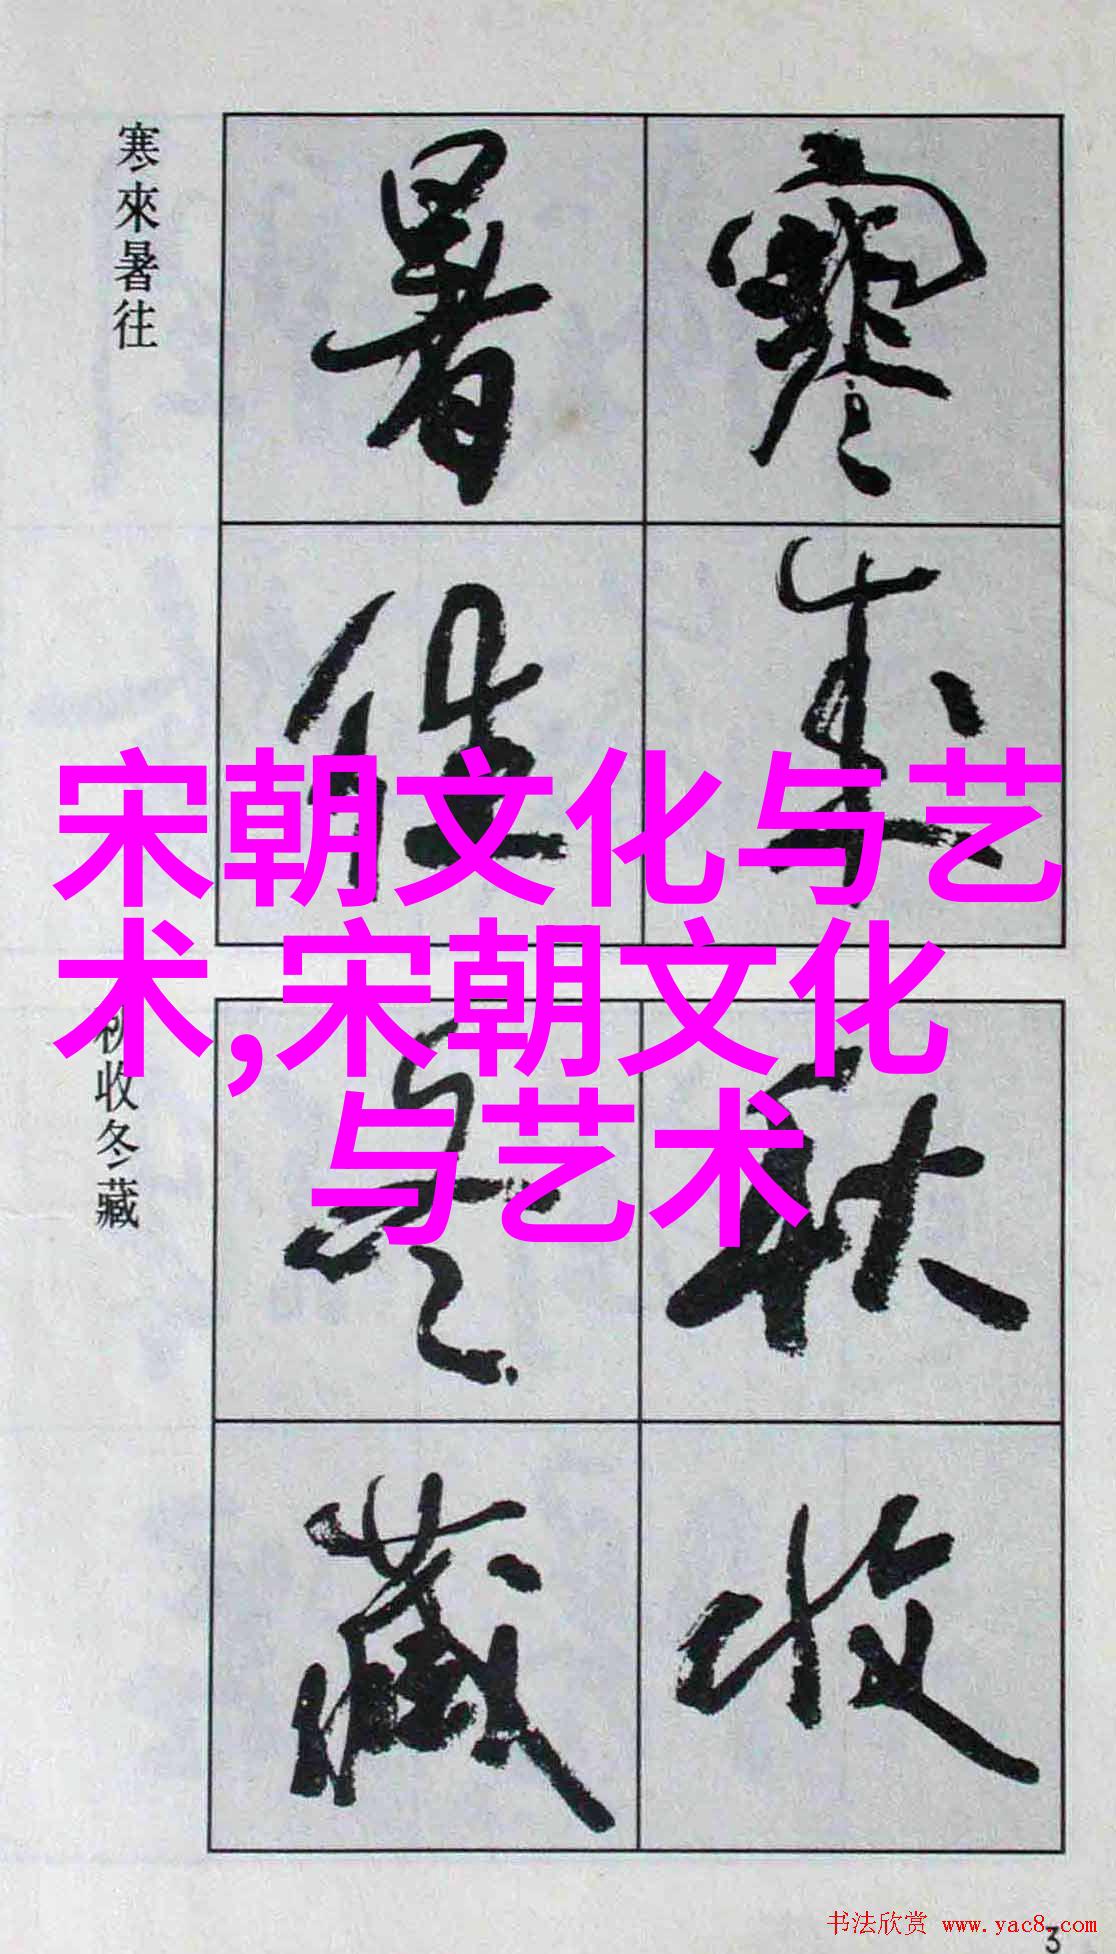 寒來暑往
寒來
暑往
宋朝文化与艺
术,宋朝文化
与艺术
收冬藏
秋收
冬藏
书法欣赏 www.yac8.com
3